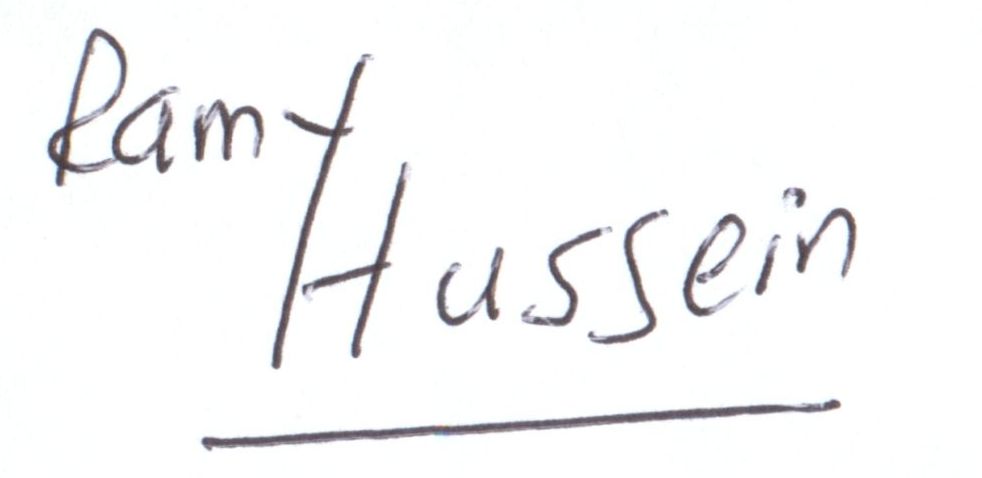 Ramy
Hussein